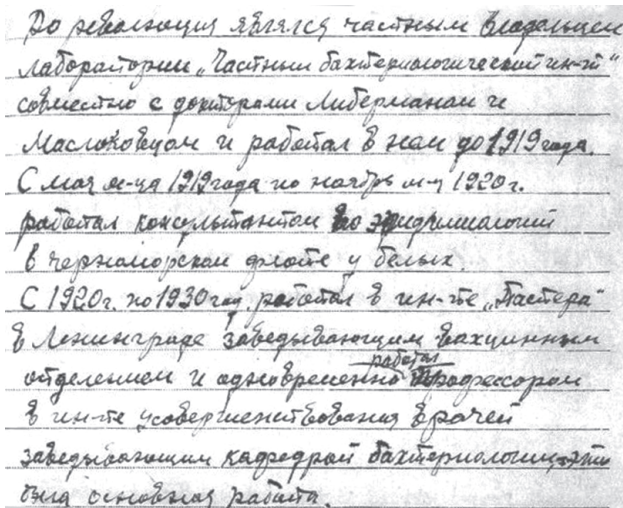 До революция являлся частным владельцем
лаборатории „Частный бактериологический ин-т“
совместно с докторами Либерманом и
Маслоковцом и работал в нем до 1919 года.
С мая м-ца 1919 года по ноябрь м-ц 1920 г.
работал консультантом по эпидемиологии
в черноморском флоте у белых.
С 1920 г. по 1930 год работал в ин-те „Пастера“
в Ленинграде заведывающим вакцинным
отделением и одновременно работал профессором
в ин-те усовершенствования врачей
заведывающим кафедрой бактериологии, это
была основная работа.